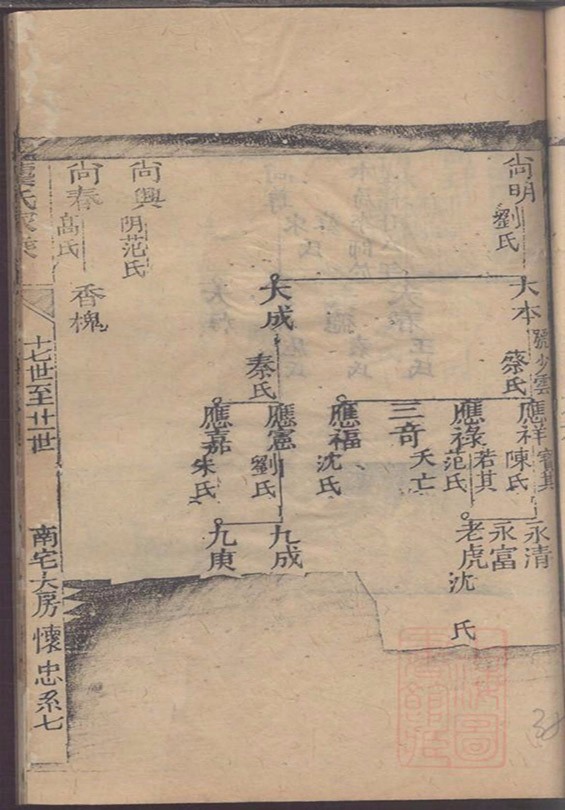 尚明
劉氏
尚興
阴范氏
尚春
高氏
香槐
大本
號少雲
蔡氏
大成
秦氏
應祥
賓其
陳氏
應祿
若其
范氏
三奇
夭亡
應福
沈氏
應憲
劉氏
應嘉
朱氏
永清
永富
老虎
沈氏
九成
九庚
十七世至廿世
南宅大房懷忠系七
38